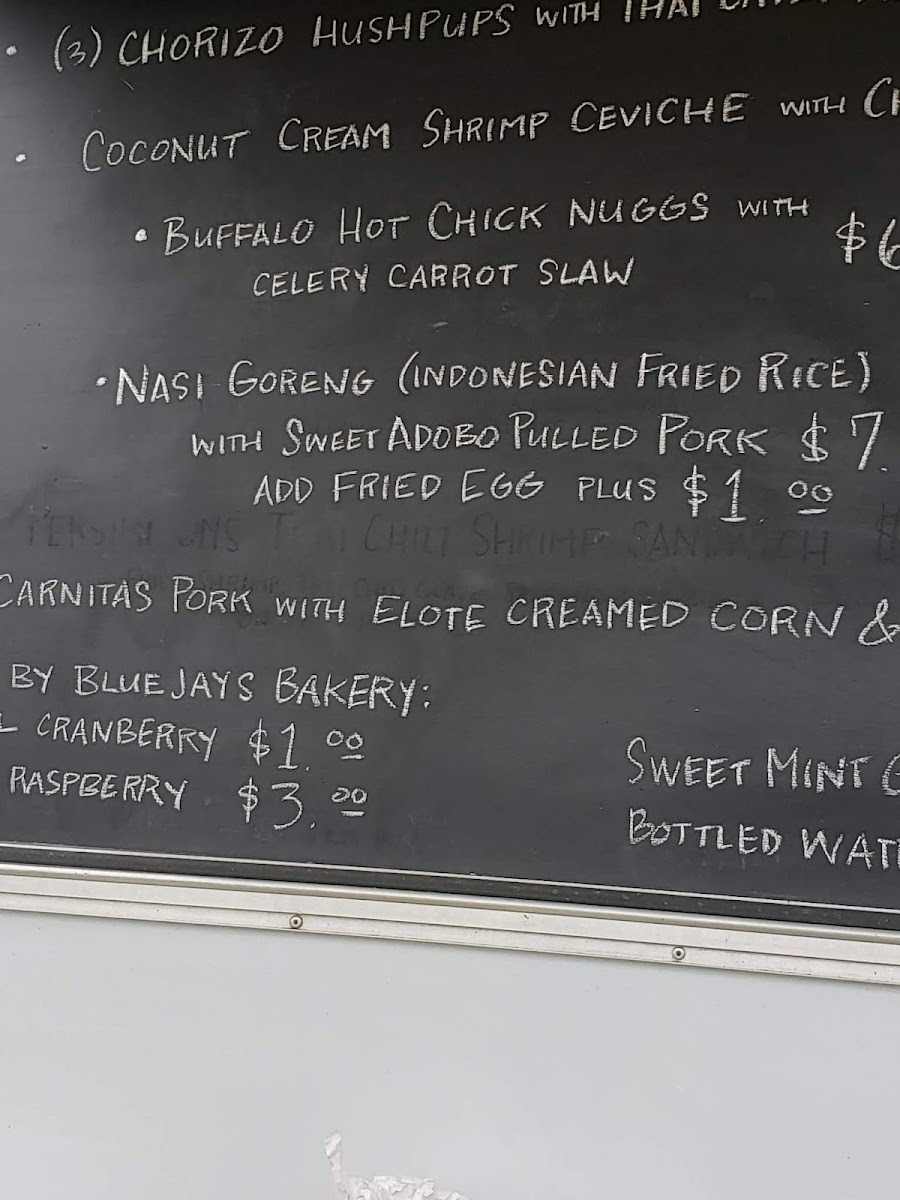 • (3) CHORIZO HUSHPUPS WITH THAI
• COCONUT CREAM SHRIMP CEVICHE WITH
• BUFFALO HOT CHICK NUGGS WITH $6
CELERY CARROT SLAW
• NASI GORENG (INDONESIAN FRIED RICE)
WITH SWEET ADOBO PULLED PORK $7.
ADD FRIED EGG PLUS $1.00
CHILI SHRIMP SANDWICH
CARNITAS PORK WITH ELOTE CREAMED CORN &
BY BLUEJAYS BAKERY:
CRANBERRY $1.00
RASPBERRY $3.00
SWEET MINT
BOTTLED